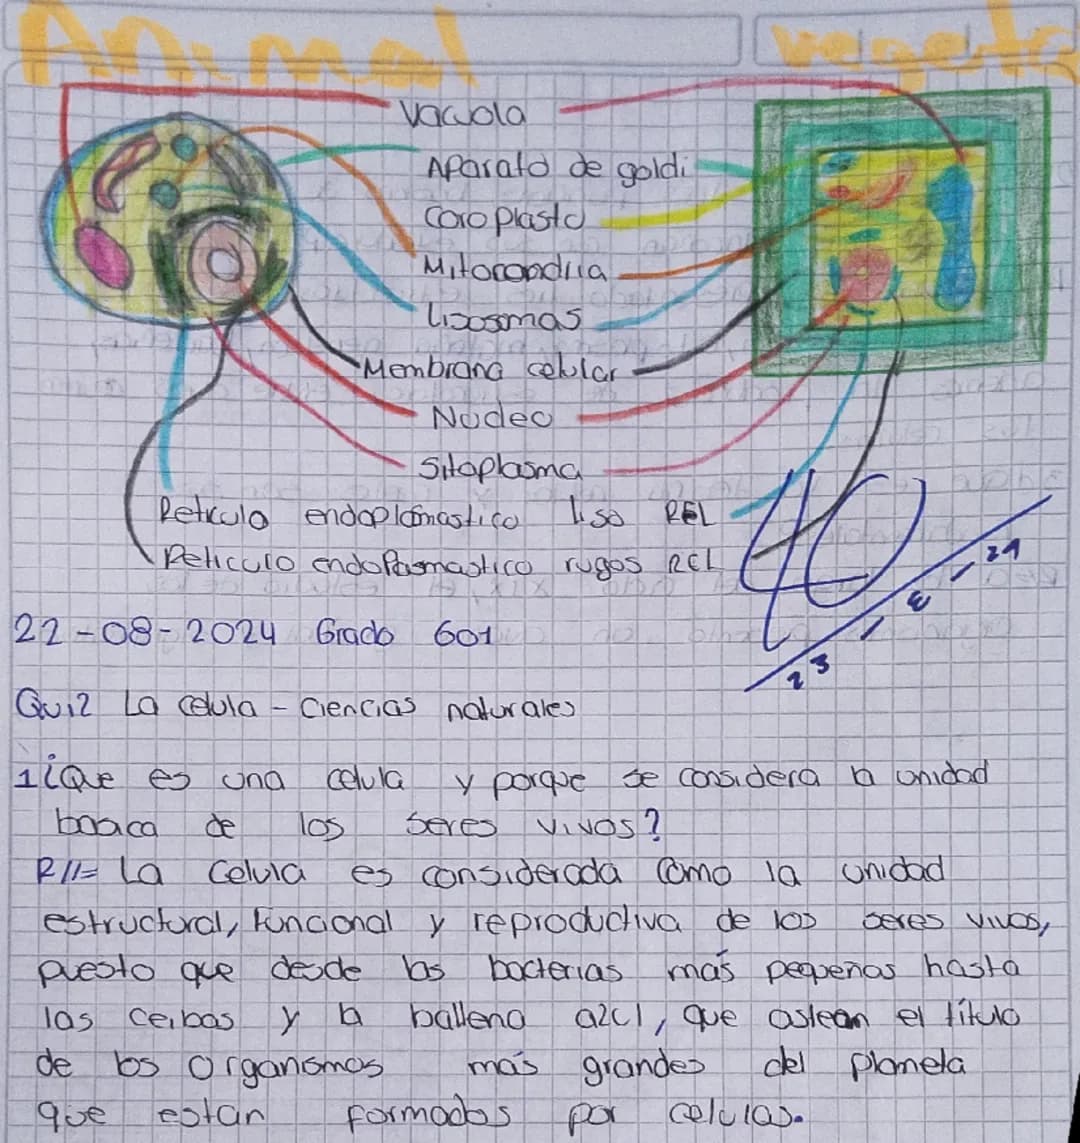 Animal vegeta
Vacuola
Aparato de goldi
Coroplasto
Mitocondria
Lisosmas
Membrana celular
Nucleo
Sitoplasma
Reticulo endoplasmastico liso REL
Reticulo endoPlasmastico rugos REL
40
23 - 3 - 29
22-08-2024 Grado 601
Quiz La celula - Ciencias naturales
1¿Que es una celula y porque se considera la unidad
basica de los seres vivos?
R//= La celula es considerada como la unidad
estructural, funcional y reproductiva de los seres vivos,
puesto que desde las bacterias más pequeñas hasta
las ceibas y la ballena azul, que astean el título
de los organismos más grandes del planeta
que están formados por celulas.